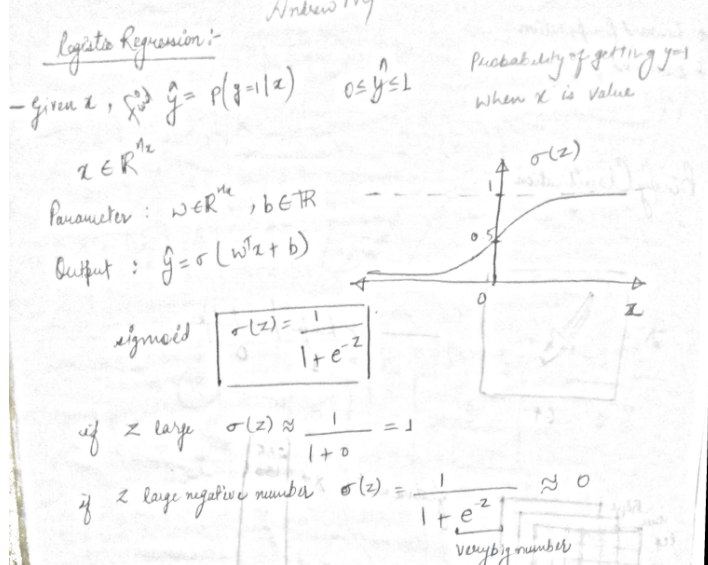 Andrew Ng
Logistic Regression :-
Probability of getting y=1
when x is value
- Given x, find ŷ = P(y=1|x)    0 ≤ ŷ ≤ 1
x ∈ ℝ^{n_x}
Parameter : w ∈ ℝ^{n_x}, b ∈ ℝ
Output : ŷ = σ(wᵀx + b)
σ(z)
1
0.5
0
z
sigmoid  σ(z) = 1 / (1 + e^{-z})
if z large  σ(z) ≈ 1 / (1 + 0) = 1
if z large negative number  σ(z) = 1 / (1 + e^{-z}) ≈ 0
very big number